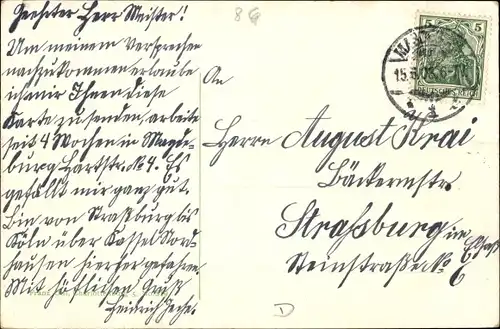 Geehrter Herr Meister!
Um meinem Versprechen
nachzukommen erlaube
ich mir Ihnen diese
Karte zu senden, arbeite
seit 4 Wochen in Magde-
burg Hartstr. No 4. Es
gefällt mir ganz gut.
Bin von Straßburg bis
Köln über Kassel Nord-
hausen hierher gefahren.
Mit höflichen Gruß
Heidrich
8G
5 5
DEUTSCHES REICH
15.5.08. 6-7N.
An
Herrn August Krai
Bäckermstr.
Strassburg in Elsaß
Steinstraßeck. 6
D